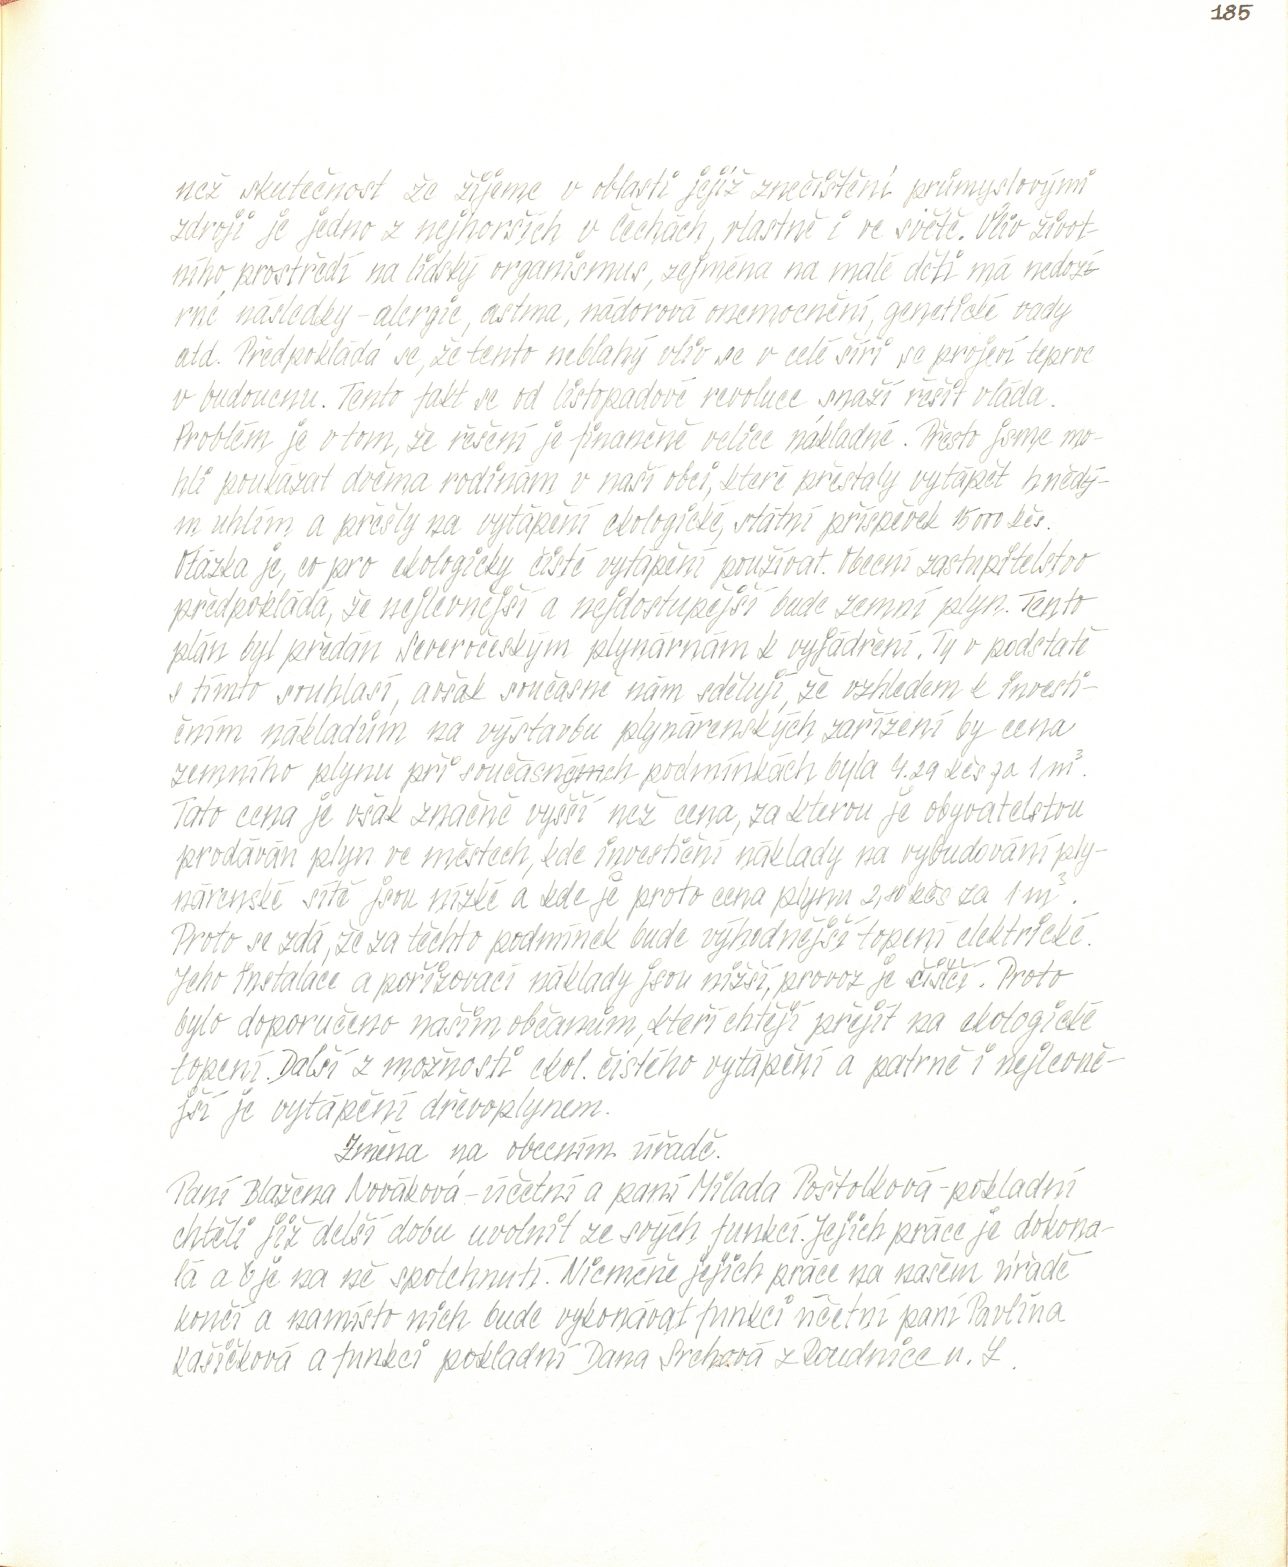 185
než skutečnost že žijeme v oblasti jejíž znečištění průmyslovými
zdroji je jedno z nejhorších v Čechách, vlastně i ve světě. Vliv život-
ního prostředí na lidský organismus, zejména na malé děti má nedozí-
rné následky - alergie, astma, nádorová onemocnění, genetické vady
atd. Předpokládá se, že tento neblahý vliv se v celé šíři se projeví teprve
v budoucnu. Tento fakt se od listopadové revoluce snaží řešit vláda.
Problém je v tom, že řešení je finančně velice nákladné. Přesto jsme mo-
hli poukázat dvěma rodinám v naší obci, které přestaly vytápět hnědý-
m uhlím a přešly na vytápění ekologické, státní příspěvek 15 000 kčs.
Otázka je, co pro ekologicky čisté vytápění používat. Obecní zastupitelstvo
předpokládá, že nejlevnější a nejdostupější bude zemní plyn. Tento
plán byl předán Severočeským plynárnám k vyjádření. Ty v podstatě
s tímto souhlasí, avšak současně nám sdělují, že vzhledem k investi-
čním nákladům na výstavbu plynárenských zařízení by cena
zemního plynu při současných podmínkách byla 4.29 kčs za 1 m³.
Tato cena je však značně vyšší než cena, za kterou je obyvatelstvu
prodáván plyn ve městech, kde investiční náklady na vybudování ply-
nárenské sítě jsou nízké a kde je proto cena plynu 2,10 kčs za 1 m³.
Proto se zdá, že za těchto podmínek bude výhodnější topení elektrické.
Jeho instalace a pořizovací náklady jsou nižší, provoz je čistčí. Proto
bylo doporučeno našim občanům, kteří chtějí přejít na ekologické
topení. Další z možností ekol. čistého vytápění a patrně i nejlevně-
jší je vytápění dřevoplynem.
Změna na obecním úřadě.
Paní Blažena Nováková - účetní a paní Milada Poštolková - pokladní
chtěli již delší dobu uvolnit ze svých funkcí. Jejich práce je dokona-
lá a je na ně spolehnutí. Nicméně jejich práce na našem úřadě
končí a namísto nich bude vykonávat funkci účetní paní Pavlína
Kašičková a funkci pokladní Dana Srchová z Roudnice n. L.